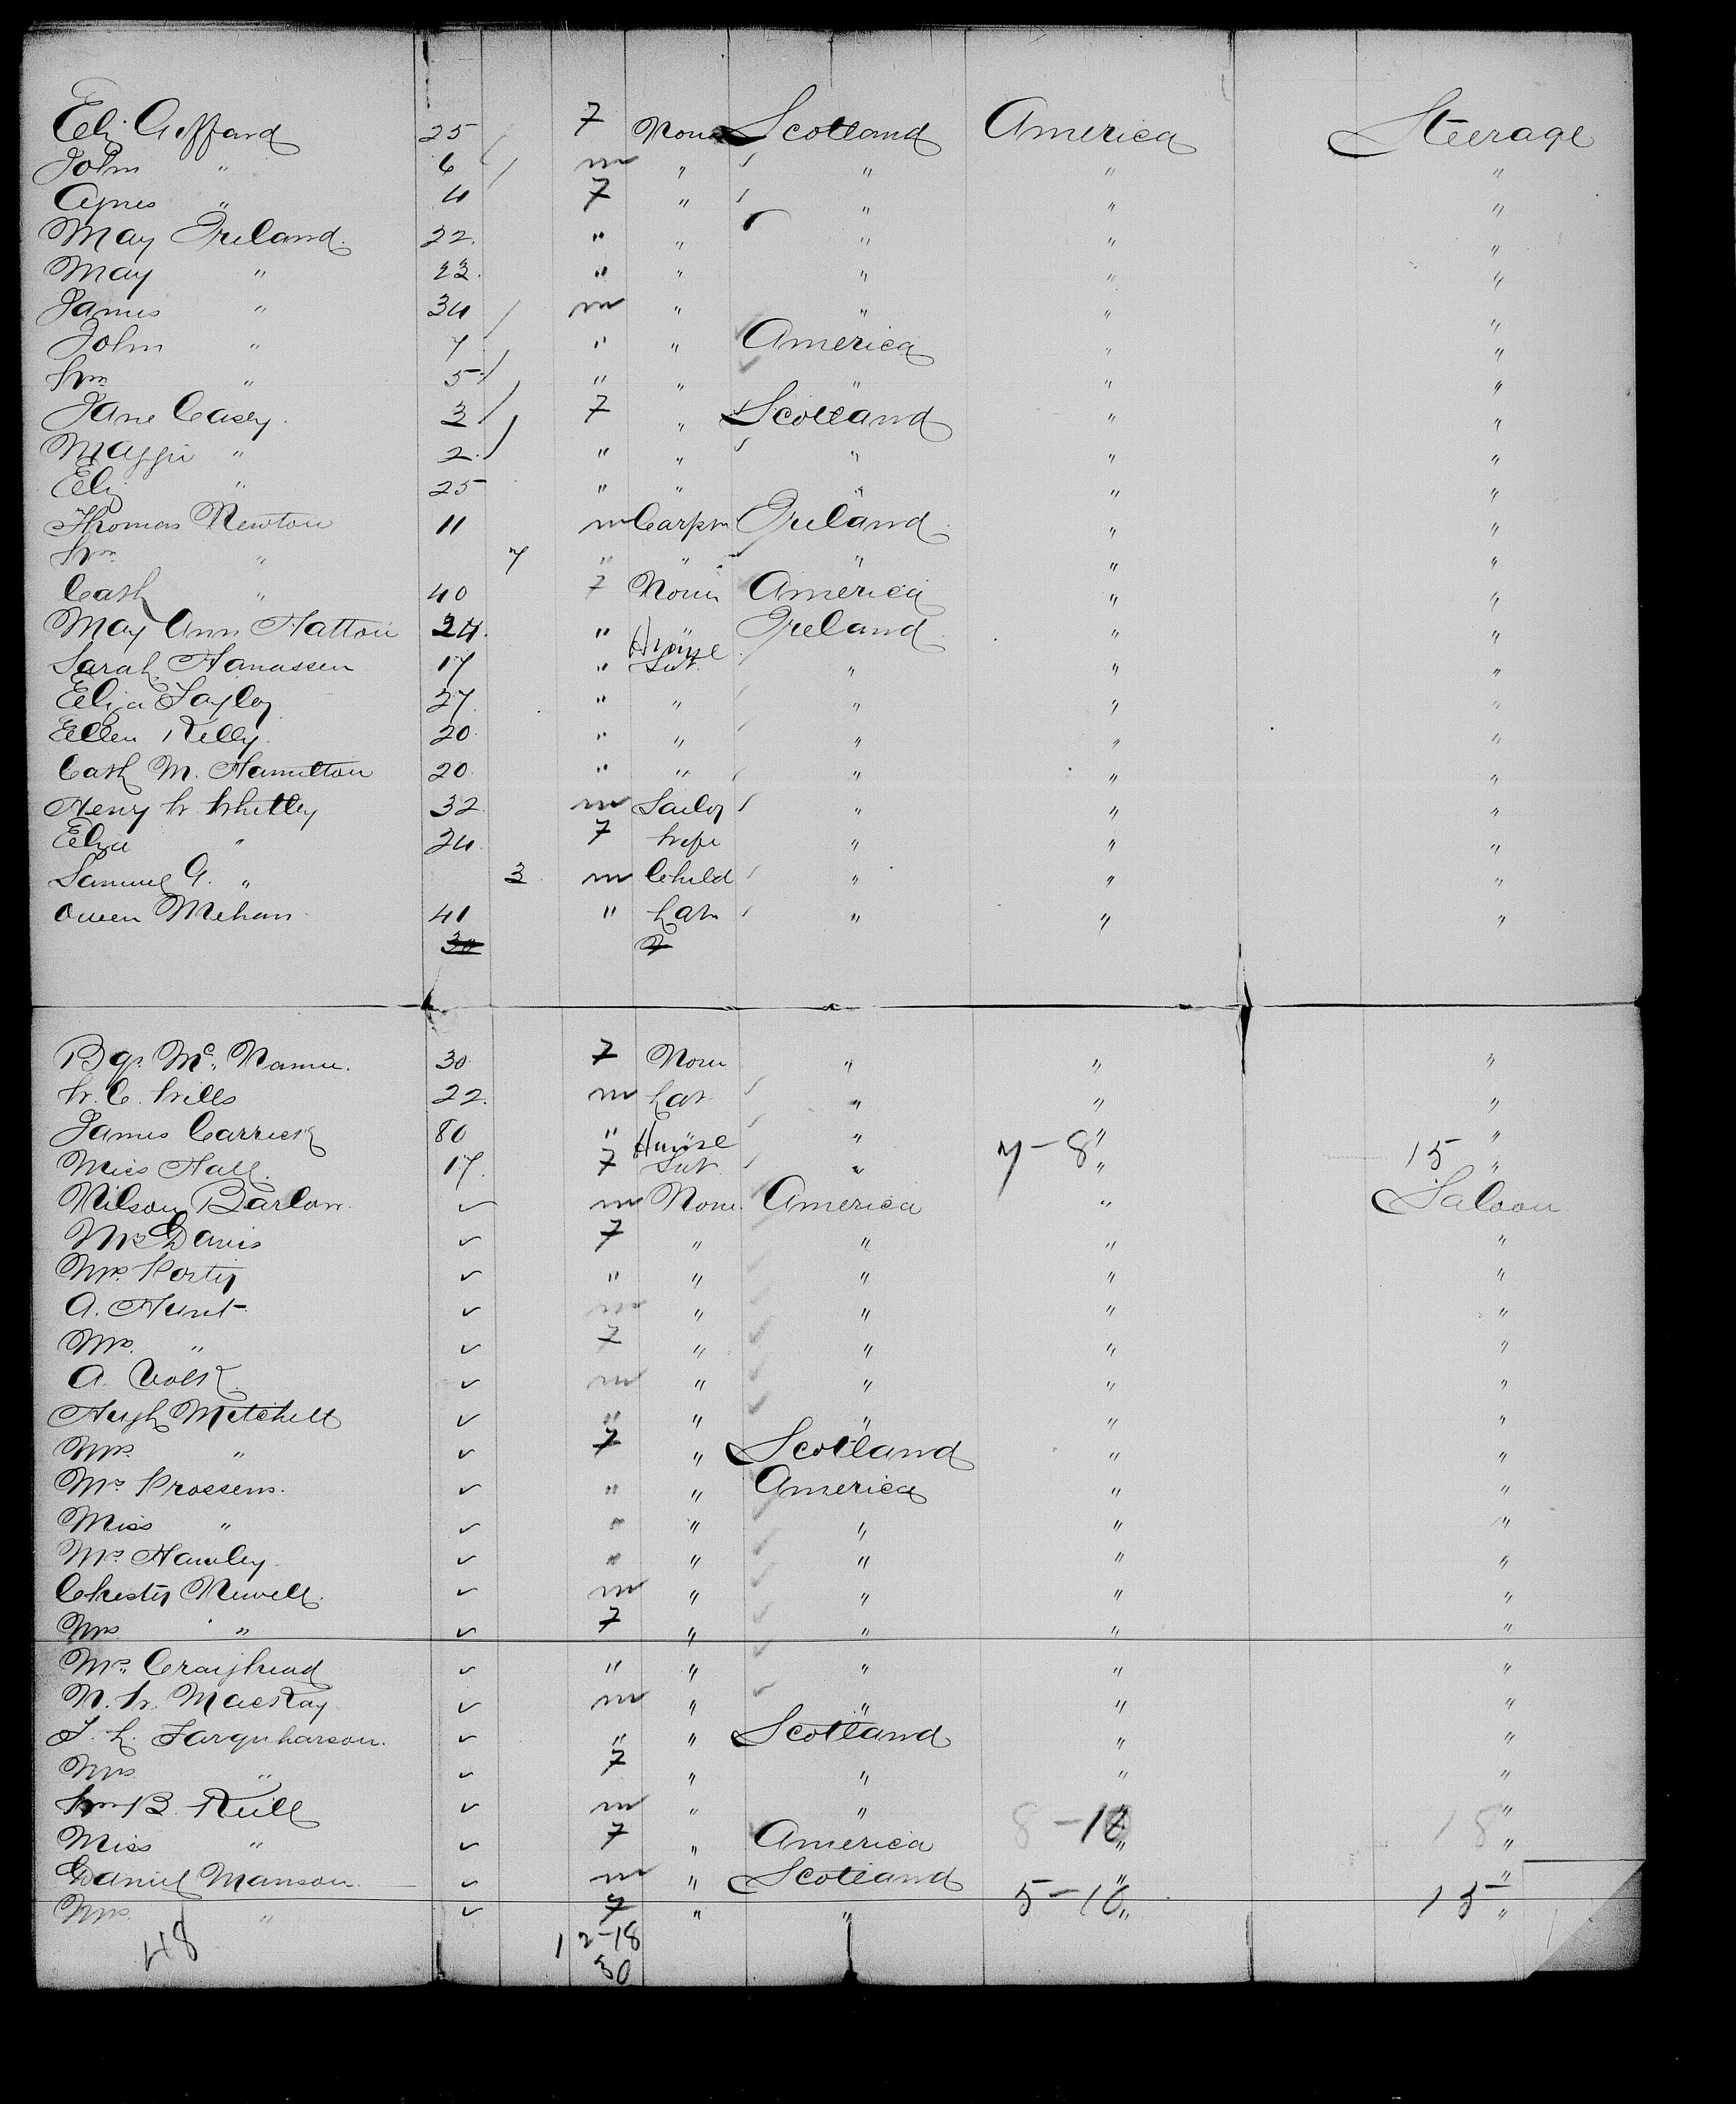 Eliz Gifford 25 F None Scotland America Steerage
John " 6 m " " " "
Agnes " 4 F " " " "
May Ireland 22 " " " " "
May " 23 " " " " "
James " 34 m " " " "
John " 7 " " America " "
Wm " 5 " " " " "
Jane Casey 3 F " Scotland " "
Maggie " 2 " " " " "
Eliz " 25 " " " " "
Thomas Newton 11 m Carpr Ireland " "
Wm " 7 " " " " "
Cath " 40 F None America " "
May Ann Hatton 24 " " Ireland " "
Sarah 17 " House Svt " " "
Eliza Sayley 27 " " " " "
Ellen Kelly 20 " " " " "
Cath M. Hamilton 20 " " " " "
Henry W Whitley 32 m Sailor " " "
Eliza " 24 F Wife " " "
Samuel G. " 3 m Child " " "
Owen Mehan 41 " Lab " " "
30
Bgt Mc Namee 30 F None " " "
W. C. Wills 22 m Lab " " "
James Carrick 80 " " " " "
Miss Hall 17 F House Svt " 7-8 " 15 "
Nilson Barlow ✓ m None America " Saloon
Mrs Davis ✓ F " " " "
Mrs Porter ✓ " " " " "
A. Hunt ✓ m " " " "
Mrs " ✓ F " " " "
A. Volk ✓ m " " " "
Hugh Mitchell ✓ " " " " "
Mrs " ✓ F " Scotland " "
Mrs Prossens ✓ " " America " "
Miss " ✓ " " " " "
Mrs Hawley ✓ " " " " "
Chester Newell ✓ m " " " "
Mrs " ✓ F " " " "
Mrs Craighead ✓ " " " " "
N. W. MacKay ✓ m " " " "
J. L. Farquharson ✓ " " Scotland " "
Mrs " ✓ F " " " "
Wm B. Keill ✓ m " " 8-10 " 18 "
Miss " ✓ F " America " "
Daniel Manson ✓ m " Scotland " "
Mrs " ✓ F " " 5-10 " 15 "
48 12-18
30